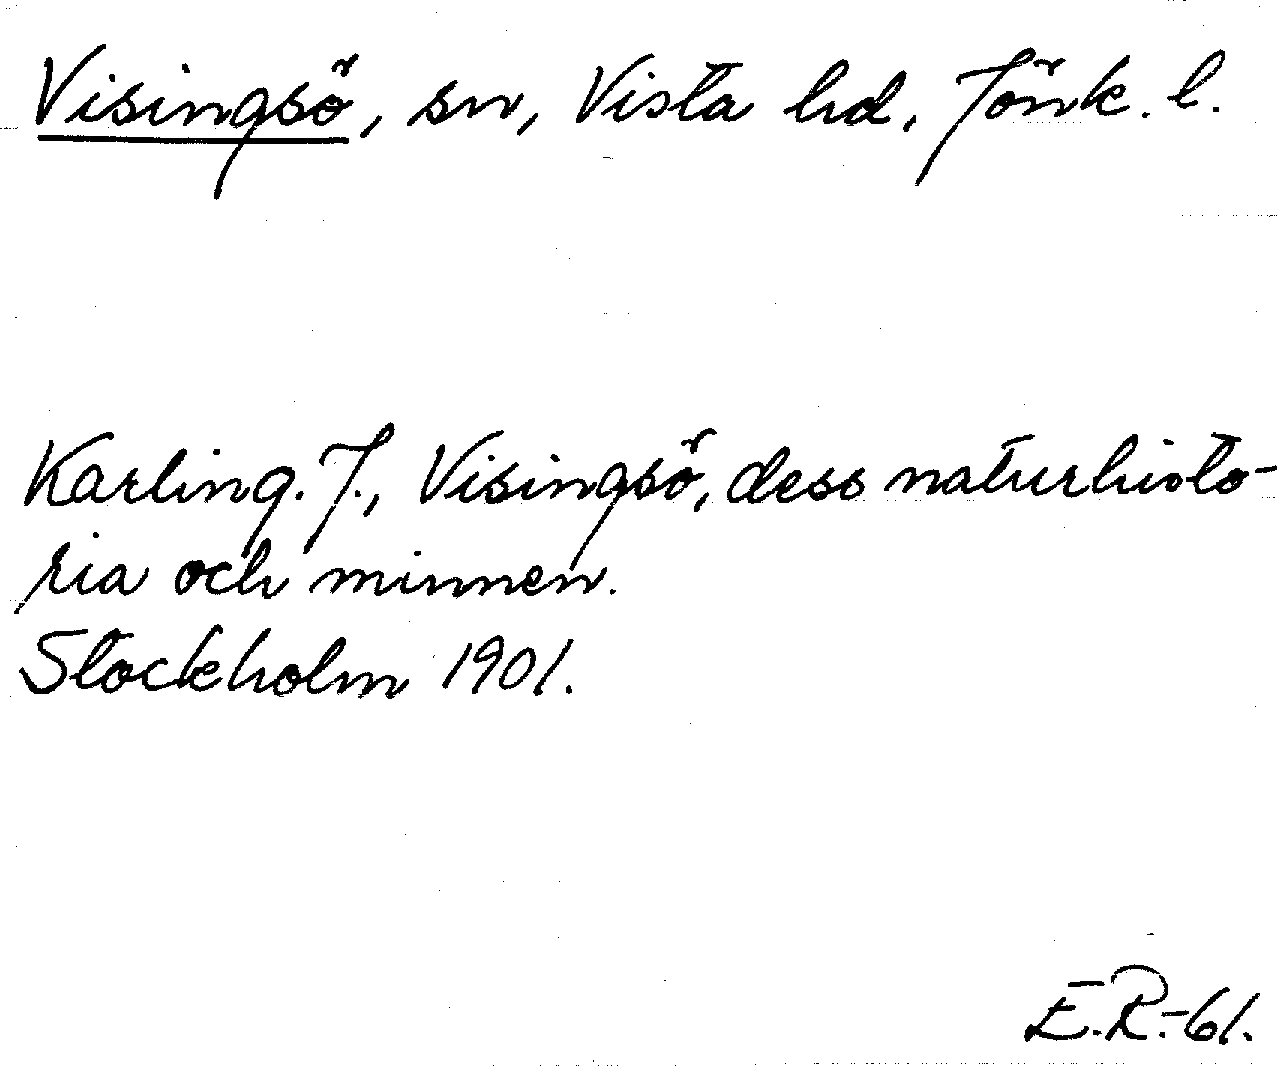 Visingsö, sn, Vista hd, Jönk. l.
Karling. J., Visingsö, dess naturhisto-
ria och minnen.
Stockholm 1901.
E.R.-61.